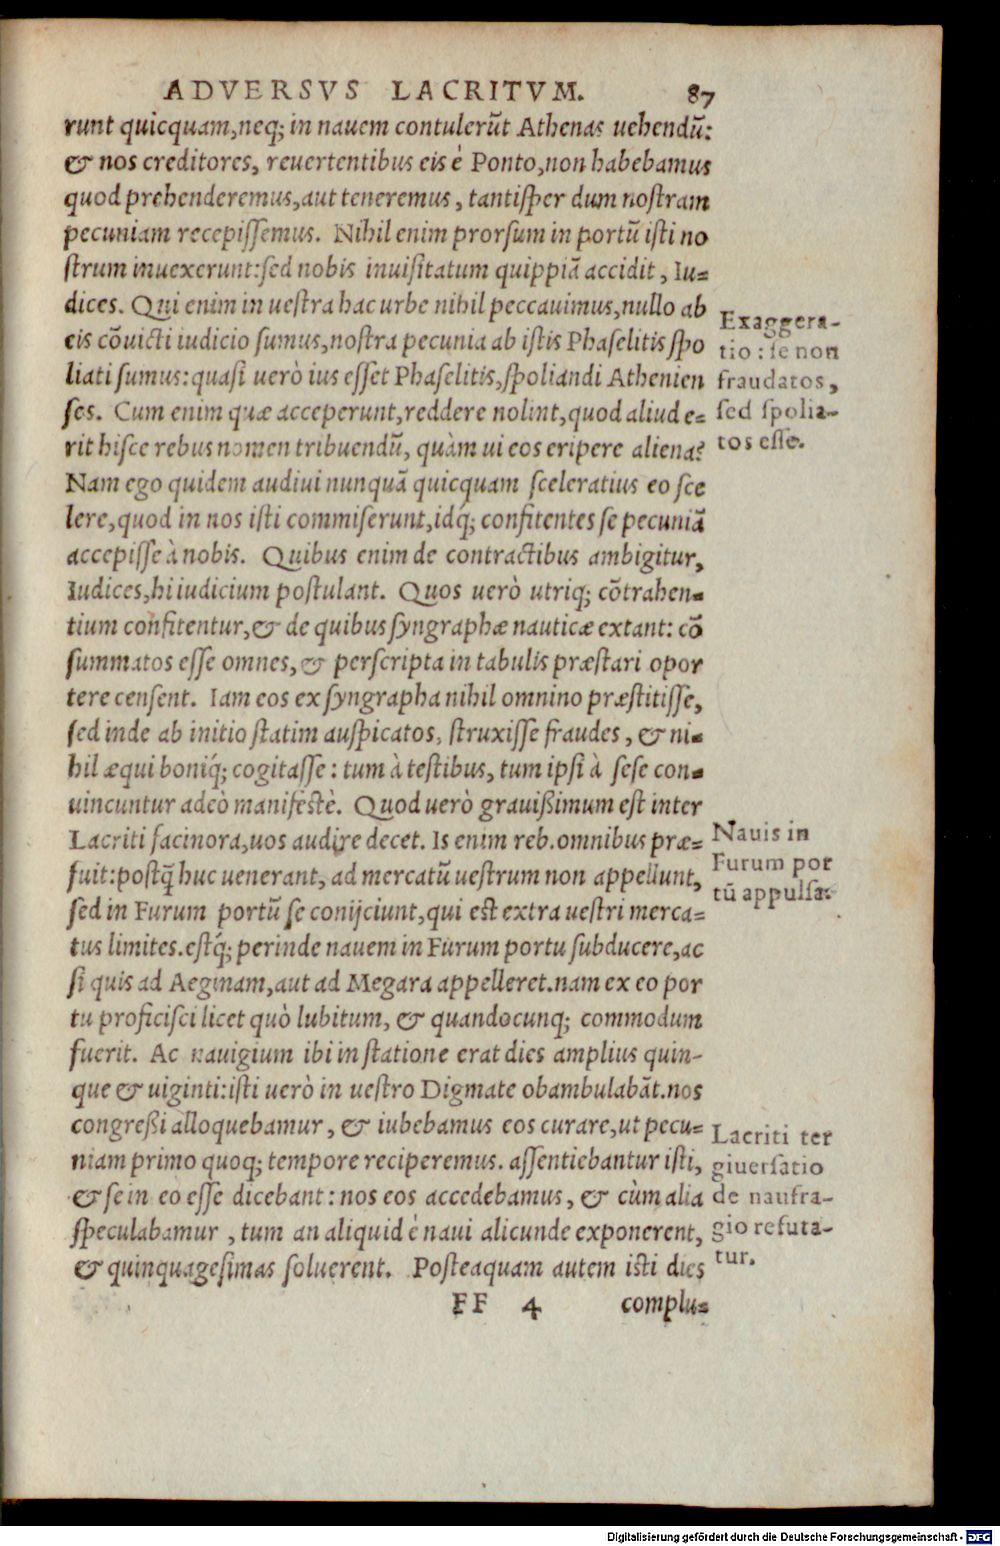 ADVERSVS LACRITVM. 87
runt quicquam,neq; in nauem contulerũt Athenas uehendũ:
& nos creditores, reuertentibus eis è Ponto,non habebamus
quod prehenderemus,aut teneremus, tantiſper dum noſtram
pecuniam recepiſſemus. Nihil enim prorſum in portũ iſti no
ſtrum inuexerunt:ſed nobis inuiſitatum quippiã accidit, Iu=
dices. Qui enim in ueſtra hac urbe nihil peccauimus,nullo ab
eis cõuicti iudicio ſumus,noſtra pecunia ab iſtis Phaſelitis ſpo
liati ſumus:quaſi uerò ius eſſet Phaſelitis,ſpoliandi Athenien
ſes. Cum enim quæ acceperunt,reddere nolint,quod aliud e=
rit hiſce rebus nomen tribuendũ, quàm ui eos eripere aliena?
Nam ego quidem audiui nunquã quicquam ſceleratius eo ſce
lere,quod in nos iſti commiſerunt,idq́; confitentes ſe pecuniã
accepiſſe à nobis. Quibus enim de contractibus ambigitur,
Iudices,hi iudicium poſtulant. Quos uerò utriq; cõtrahen=
tium confitentur,& de quibus ſyngraphæ nauticæ extant: cõ
ſummatos eſſe omnes,& perſcripta in tabulis præſtari opor
tere cenſent. Iam eos ex ſyngrapha nihil omnino præſtitiſſe,
ſed inde ab initio ſtatim auſpicatos, ſtruxiſſe fraudes, & ni=
hil æqui boniq́; cogitaſſe: tum à teſtibus, tum ipſi à ſeſe con=
uincuntur adeò manifeſtè. Quod uerò grauißimum eſt inter
Lacriti facinora,uos audire decet. Is enim reb.omnibus præ=
fuit:poſtq̃ huc uenerant, ad mercatũ ueſtrum non appellunt,
ſed in Furum portũ ſe conijciunt,qui eſt extra ueſtri merca=
tus limites.eſtq́; perinde nauem in Furum portu ſubducere,ac
ſi quis ad Aeginam,aut ad Megara appelleret.nam ex eo por
tu proficiſci licet quò lubitum, & quandocunq; commodum
fuerit. Ac nauigium ibi in ſtatione erat dies amplius quin-
que & uiginti:iſti uerò in ueſtro Digmate obambulabãt.nos
congreßi alloquebamur, & iubebamus eos curare,ut pecu=
niam primo quoq; tempore reciperemus. aſſentiebantur iſti,
& ſe in eo eſſe dicebant: nos eos accedebamus, & cùm alia
ſpeculabamur, tum an aliquid è naui alicunde exponerent,
& quinquageſimas ſoluerent. Poſteaquam autem iſti dies
FF 4 complu=
Exaggera-
tio: ſe non
fraudatos,
ſed ſpolia-
tos eſſe.
Nauis in
Furum por
tũ appulſa.
Lacriti ter
giuerſatio
de naufra-
gio refuta-
tur.
Digitalisierung gefördert durch die Deutsche Forschungsgemeinschaft - DFG